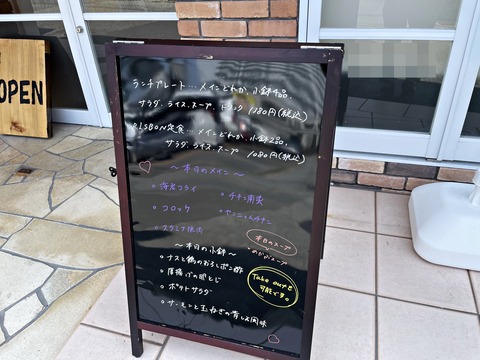 OPEN
ランチプレート…メインどれか、小鉢4品、
サラダ、ライス、スープ、ドリンク 1380円(税込)
LISBON定食…メインどれか、小鉢2品、
サラダ、ライス、スープ 1080円(税込)
〜本日のメイン〜
海老フライ
チキン南蛮
コロッケ
ヤンニョムチキン
スタミナ焼肉
〜本日の小鉢〜
本日のスープ
ナスと鶏のおろしポン酢
厚揚げの卵とじ
Take outも
可能です。
ポテトサラダ
サーモンと玉ねぎの青じそ風味